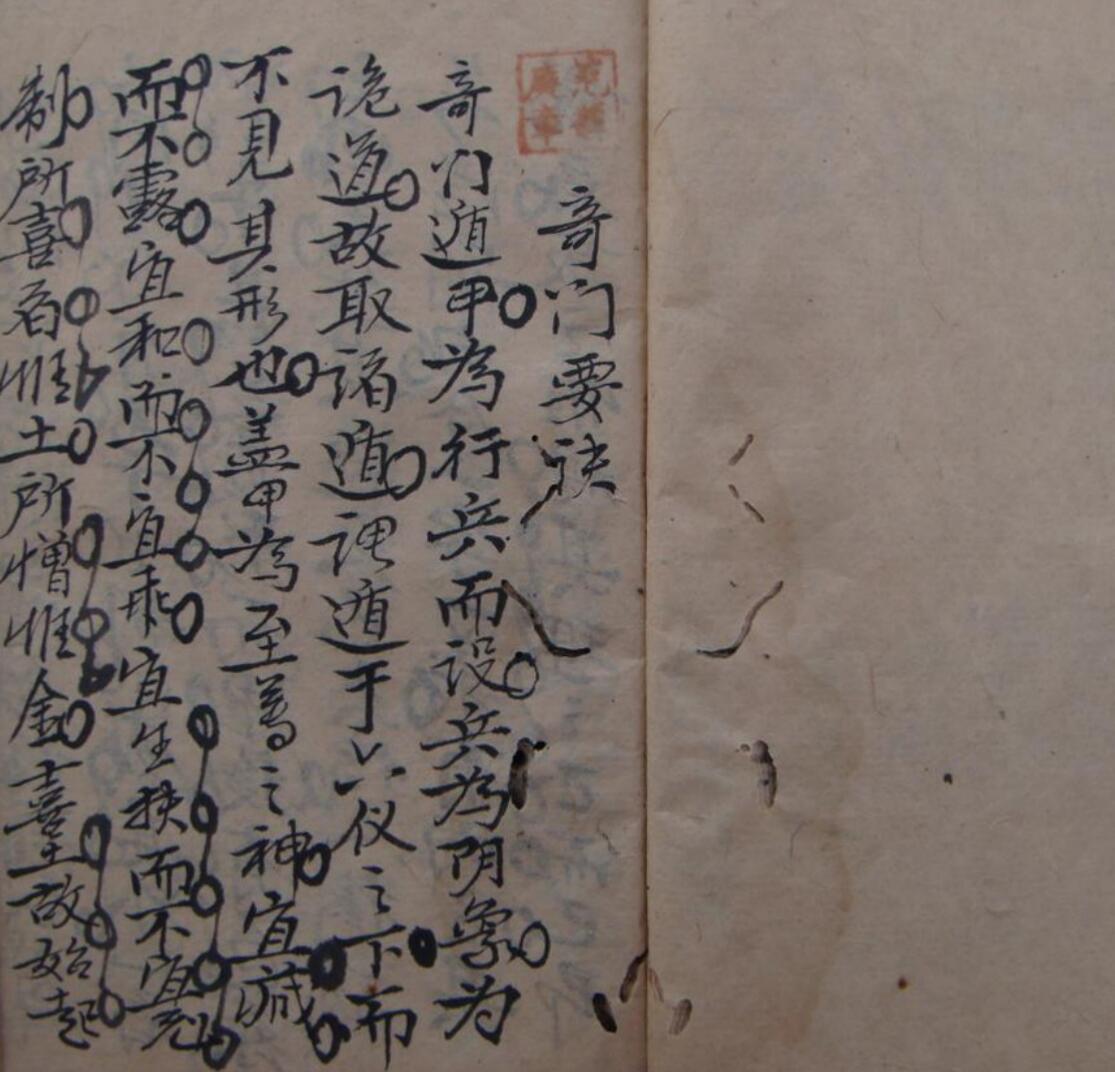 奇门要诀
奇门遁甲為行兵而设兵為阴象为
诡道故取诸遁谓遁于六仪之下而
不見其形也盖甲為至尊之神宜藏
而不露宜和而不宜乖宜生扶而不宜克
制所喜者惟土所憎惟金喜土故始起